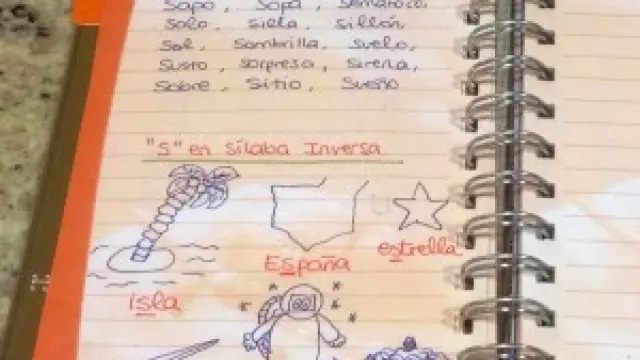 Sapo, Sopa, Semáforo,
Solo, Silla, Sillón,
Sal, Sombrilla, Suelo,
Susto, Sorpresa, Sirena,
Sobre, Sitio, Sueño
"S" en Sílaba Inversa
España estrella
isla